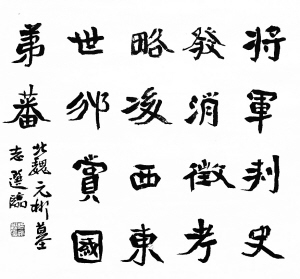 將軍刺史
發消徵考
略凌西東
世邠賞國
第蕃
北魏元彬墓
志選臨